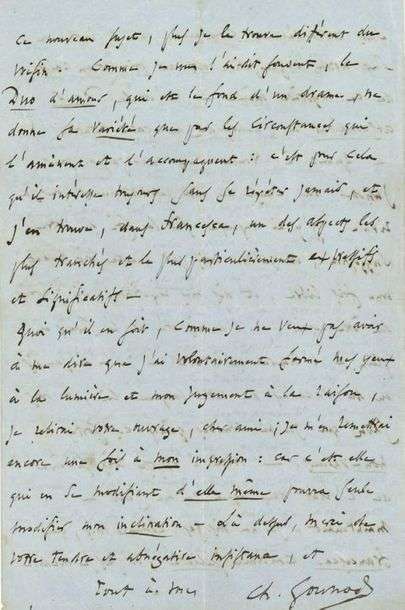 ce nouveau sujet, plus je le trouve différent du
voisin. Comme je vous l'ai dit souvent, le
Duo d'amour, qui est le fond d'un drame, ne
donne sa variété que par les circonstances qui
l'amènent et l'accompagnent : c'est pour cela
qu'il intéresse toujours sans se répéter jamais, et
j'en trouve, dans Francesca, un des aspects les
plus tranchés et le plus particulièrement expressifs
et significatifs —
Quoi qu'il en soit, comme je ne veux pas avoir
à me dire que j'ai volontairement fermé mes yeux
à la lumière et mon jugement à la raison,
je relirai votre ouvrage, cher ami ; je m'en remettrai
encore une fois à mon impression : car c'est elle
qui en se modifiant d'elle même pourra seule
modifier mon inclination — Là dessus, merci de
votre tendre et insistance, et
tout à vous
Ch. Gounod